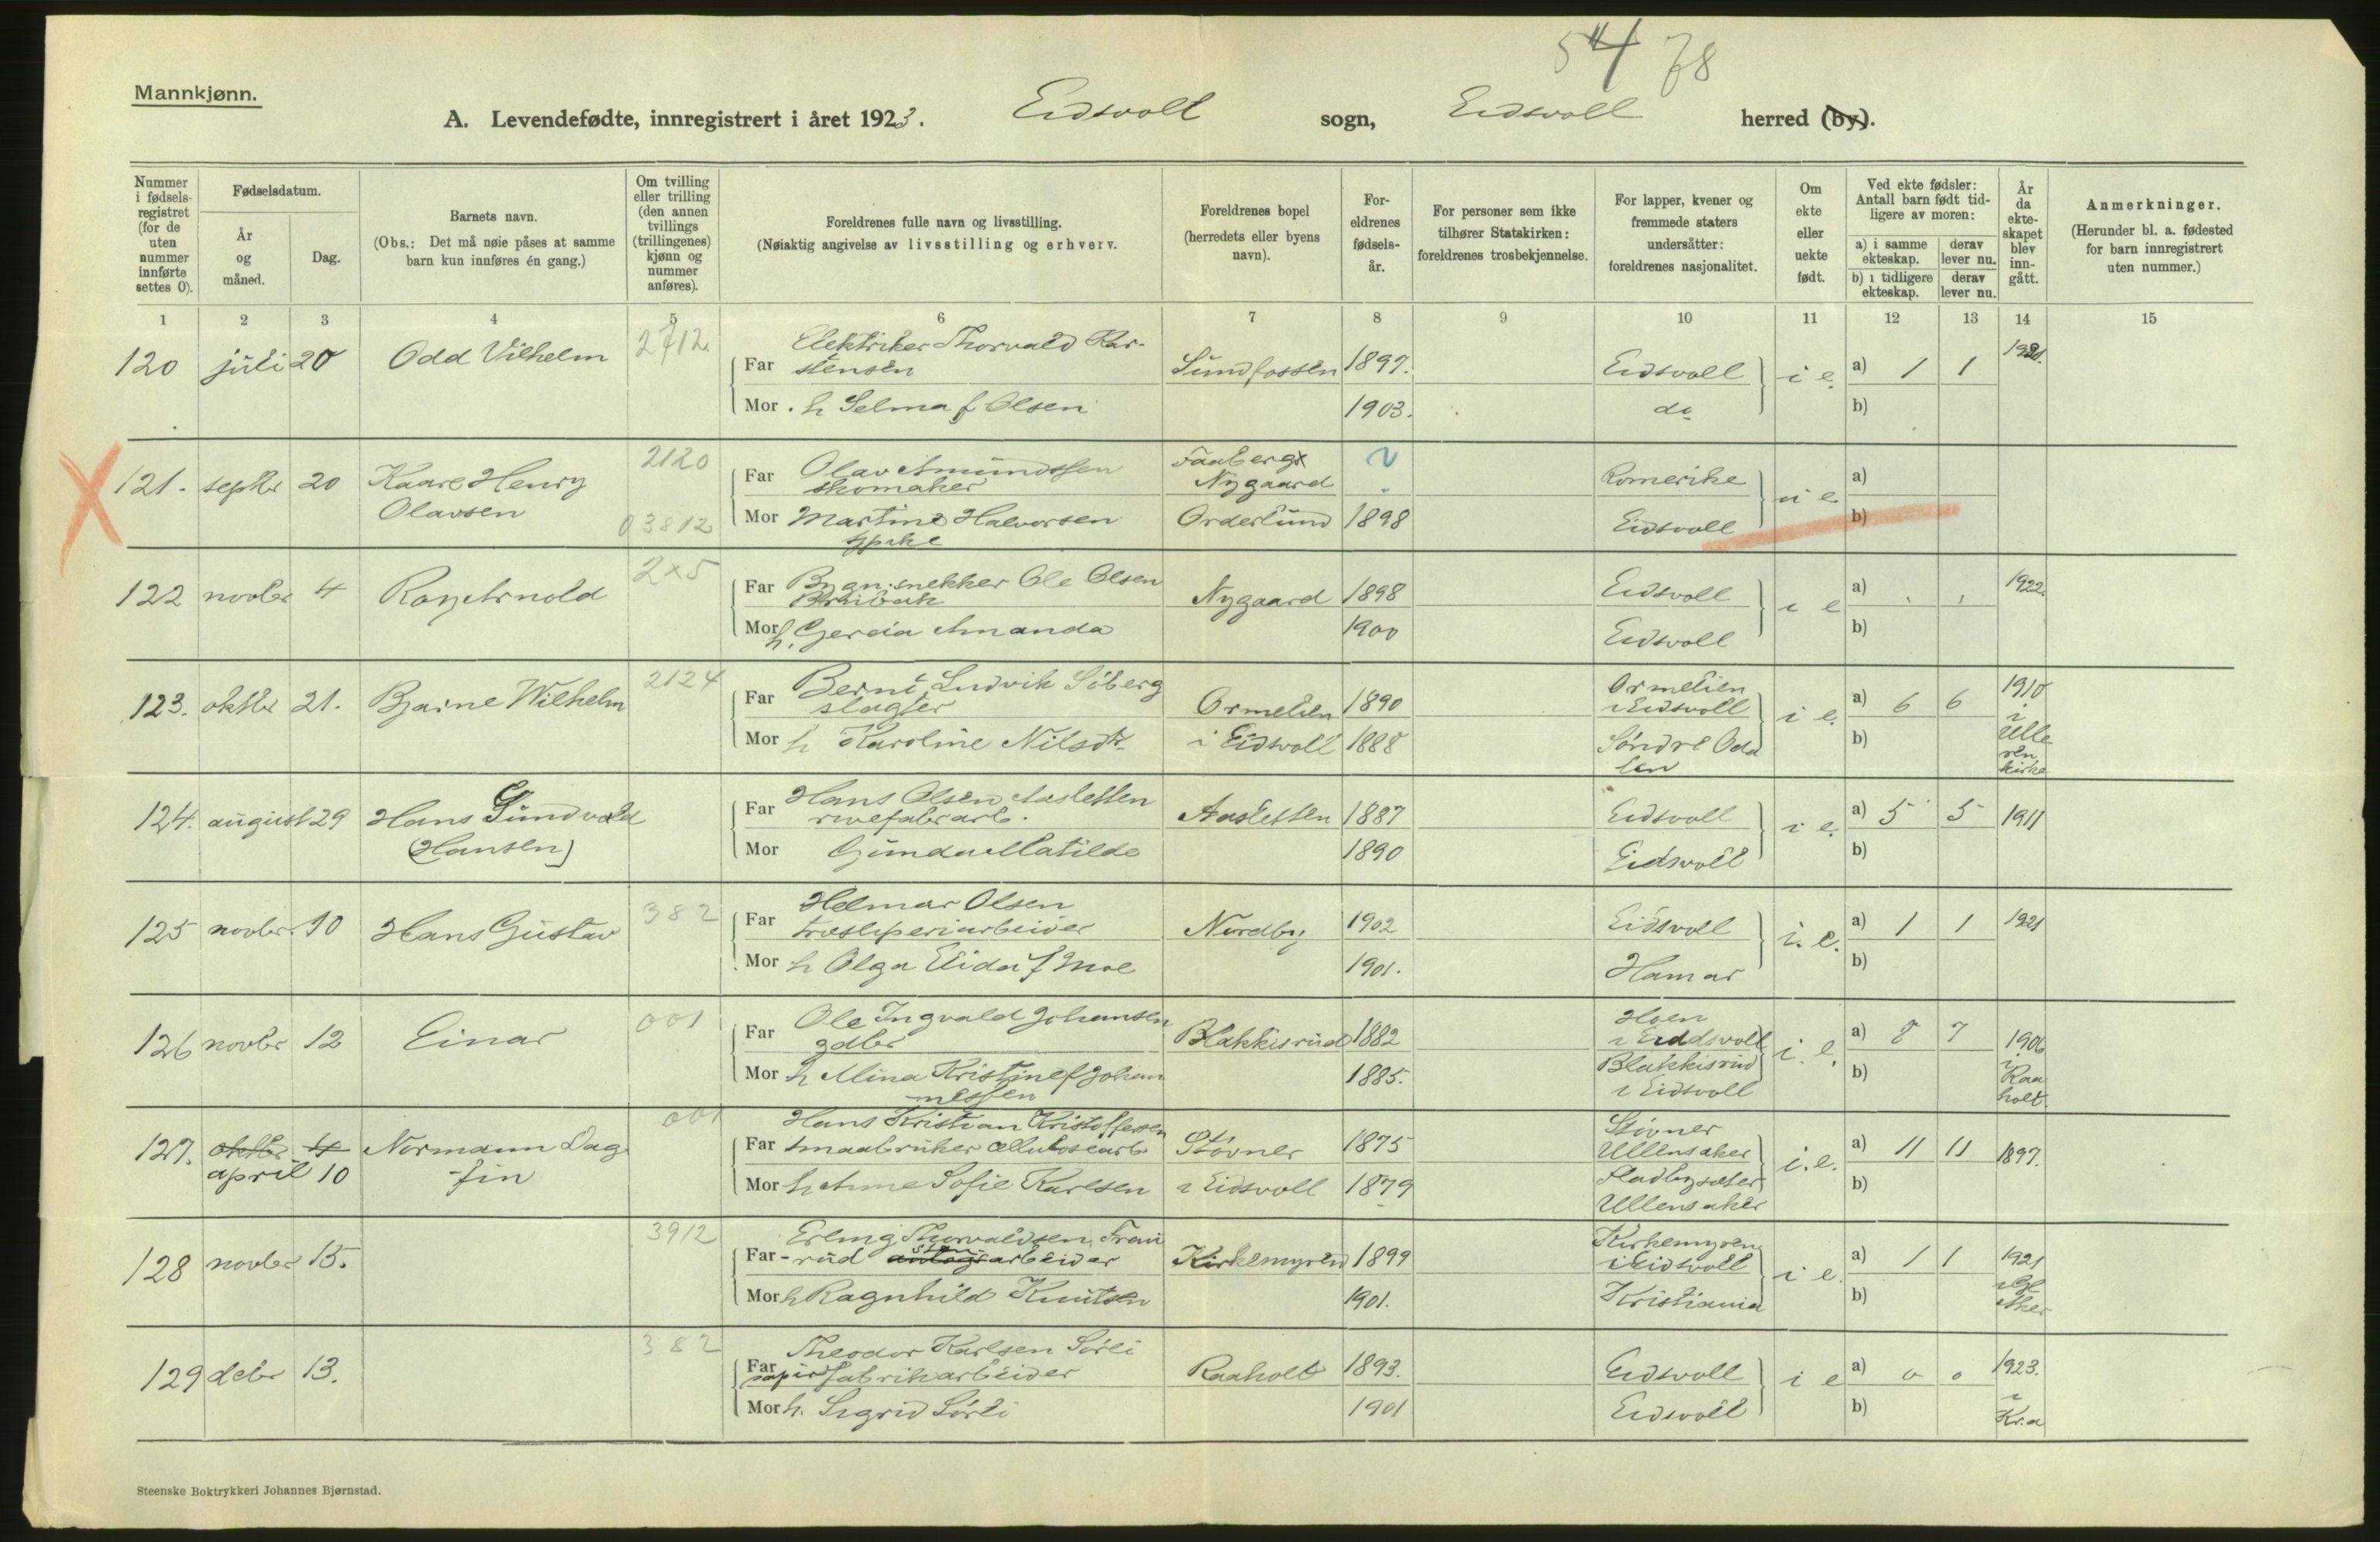 54 78
Mannkjønn.
A. Levendefødte, innregistrert i året 1923. Eidsvoll sogn, Eidsvoll herred (by).
Nummer i fødselsregistret (for de uten nummer innførte settes 0).
Fødselsdatum.
År og måned.
Dag.
Barnets navn.
(Obs.: Det må nøie påses at samme barn kun innføres én gang.)
Om tvilling eller trilling (den annen tvillings (trillingenes) kjønn og nummer anføres).
Foreldrenes fulle navn og livsstilling.
(Nøiaktig angivelse av livsstilling og erhverv.
Foreldrenes bopel (herredets eller byens navn).
Foreldrenes fødselsår.
For personer som ikke tilhører Statskirken: foreldrenes trosbekjennelse.
For lapper, kvener og fremmede staters undersåtter: foreldrenes nasjonalitet.
Om ekte eller uekte født.
Ved ekte fødsler: Antall barn født tidligere av moren:
a) i samme ekteskap. derav lever nu.
b) i tidligere ekteskap. derav lever nu.
År da ekteskapet blev inngått.
Anmerkninger.
(Herunder bl. a. fødested for barn innregistrert uten nummer.)
1 2 3 4 5 6 7 8 9 10 11 12 13 14 15
120 juli 20 Odd Vilhelm 2712.
Far Elektriker Thorvald Karstensen Sundfossen 1897. Eidsvoll i e. a) 1 1 1921.
Mor h Selma f Olsen 1903. do b)
121. septbr 20 Kaare Henry Olavsen 2120 03812
Far Olav Amundssen skomaker Faaberg x Nygaard Romerike u e a)
Mor Martine Halvorsen Orderlund 1898 Eidsvoll b)
122 novbr 4 Roy Arnold 2x5
Far Bygn.snekker Ole Olsen Nygaard 1898 Eidsvoll i e a) 1922.
Mor h. Amanda 1900 Eidsvoll b)
123. oktbr 21. Bjarne Wilhelm 2124
Far Bernt Ludvik Söberg slagter Ormelien 1890 Ormelien i Eidsvoll i e. a) 6 6 1910 i Ulleren kirke
Mor h Karoline Nilsdtr i Eidsvoll 1888 Söndre Odalen b)
124. august 29 Hans Gundvald (Hansen)
Far Hans Olsen Aasletten Aasletten 1887 Eidsvoll i e. a) 5 5 1911
Mor Gunda Matilde 1890 Eidsvoll b)
125 novbr. 10 Hans Gustav 382
Far Helmar Olsen træsliperiarbeider Nordby 1902 Eidsvoll i. e. a) 1 1 1921
Mor h Olga Elida f Moe 1901. Hamar b)
126 novbr 12 Einar 001
Far Ole Ingvald Johansen gdbr Blakkisrud 1882 Hoen i Eidsvoll i. e. a) 8 7 1906 i Raaholt.
Mor h Mina Kristine f Johannessen 1885. Blakkisrud i Eidsvoll b)
127. oktbr 4 april 10 Normann Dagfin 001
Far Hans Kristian Kristoffersen smaabruker cellulosearb Stövner 1875 Stövner Ullensaker i.e. a) 11 11 1897.
Mor h Anne Sofie Karlsen i Eidsvoll 1879 Ullensaker b)
128 novbr 15. 3912
Far Erling Thorvaldsen arbeider Kirkemyren 1899 Kirkemyren i Eidsvoll i e. a) 1 1 1921
Mor h Ragnhild Knutsen 1901. Kristiania b)
129 debr 13. 382
Far Theodor Karlsen Sörli papirfabrikarbeider Raaholt 1893. Eidsvoll i e a) 0 0 1923. i Kr.a
Mor h. Sigrid Sörli 1901 Eidsvoll b)
Steenske Boktrykkeri Johannes Bjørnstad.